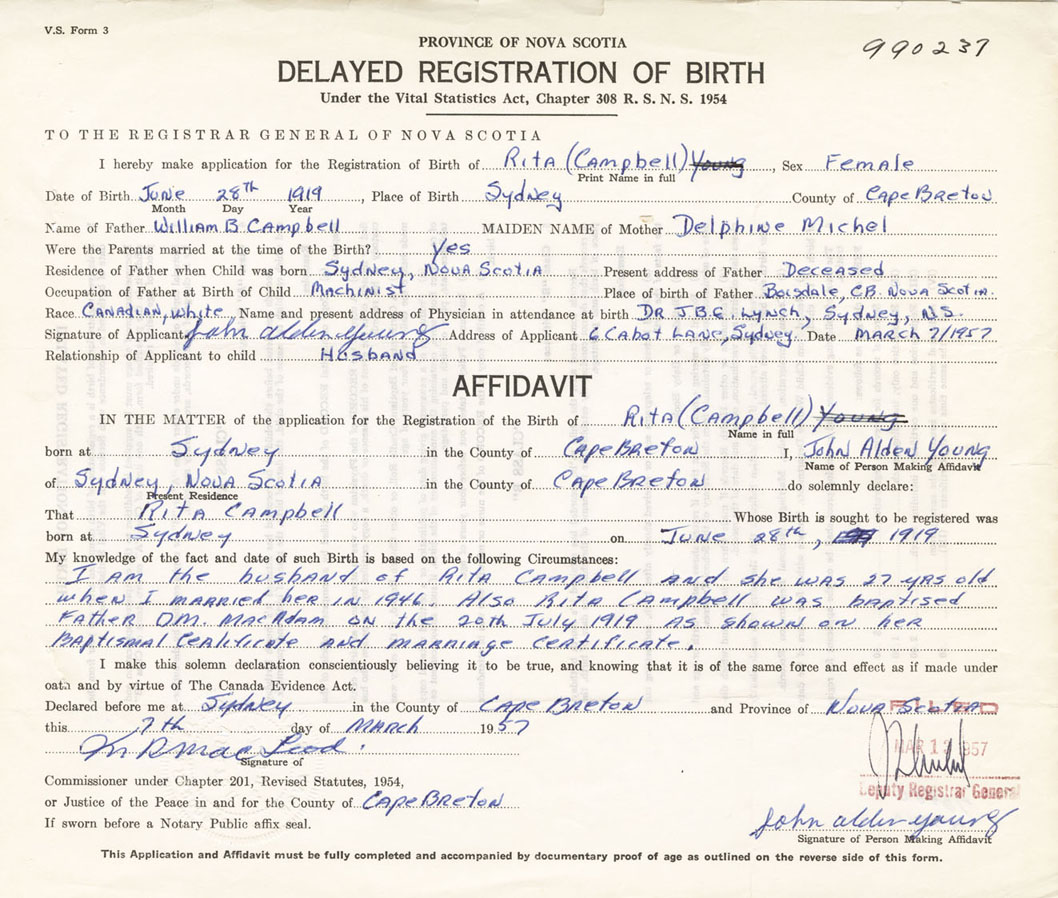 V.S. Form 3
990237
PROVINCE OF NOVA SCOTIA
DELAYED REGISTRATION OF BIRTH
Under the Vital Statistics Act, Chapter 308 R. S. N. S. 1954
TO THE REGISTRAR GENERAL OF NOVA SCOTIA
I hereby make application for the Registration of Birth of Rita (Campbell) Young, Sex Female
Print Name in full
Date of Birth June 28th 1919, Place of Birth Sydney County of Cape Breton
Month Day Year
Name of Father William B Campbell MAIDEN NAME of Mother Delphine Michel
Were the Parents married at the time of the Birth? Yes
Residence of Father when Child was born Sydney, Nova Scotia Present address of Father Deceased
Occupation of Father at Birth of Child Machinist Place of birth of Father Boisdale, C.B. Nova Scotia.
Race Canadian, White Name and present address of Physician in attendance at birth Dr J.B.G. Lynch, Sydney, N.S.
Signature of Applicant John Alden Young Address of Applicant 6 Cabot Lane, Sydney. Date March 7/1957
Relationship of Applicant to child Husband
AFFIDAVIT
IN THE MATTER of the application for the Registration of the Birth of Rita (Campbell) Young
Name in full
born at Sydney in the County of Cape Breton I, John Alden Young
Name of Person Making Affidavit
of Sydney, Nova Scotia in the County of Cape Breton do solemnly declare:
Present Residence
That Rita Campbell Whose Birth is sought to be registered was
born at Sydney on June 28th, 1919
My knowledge of the fact and date of such Birth is based on the following Circumstances:
I am the husband of Rita Campbell and she was 27 yrs old
when I married her in 1946. Also Rita Campbell was baptised
Father D.M. MacAdam on the 20th July 1919 as shown on her
Baptismal Cealificate and marringe certificate.
I make this solemn declaration conscientiously believing it to be true, and knowing that it is of the same force and effect as if made under
oath and by virtue of The Canada Evidence Act.
Declared before me at Sydney in the County of Cape Breton and Province of Nova Scotia
this 7th day of March 1957
FILED
MAR 13 1957
Signature of
Commissioner under Chapter 201, Revised Statutes, 1954,
Deputy Registrar General
or Justice of the Peace in and for the County of Cape Breton
If sworn before a Notary Public affix seal.
John Alden Young
Signature of Person Making Affidavit
This Application and Affidavit must be fully completed and accompanied by documentary proof of age as outlined on the reverse side of this form.